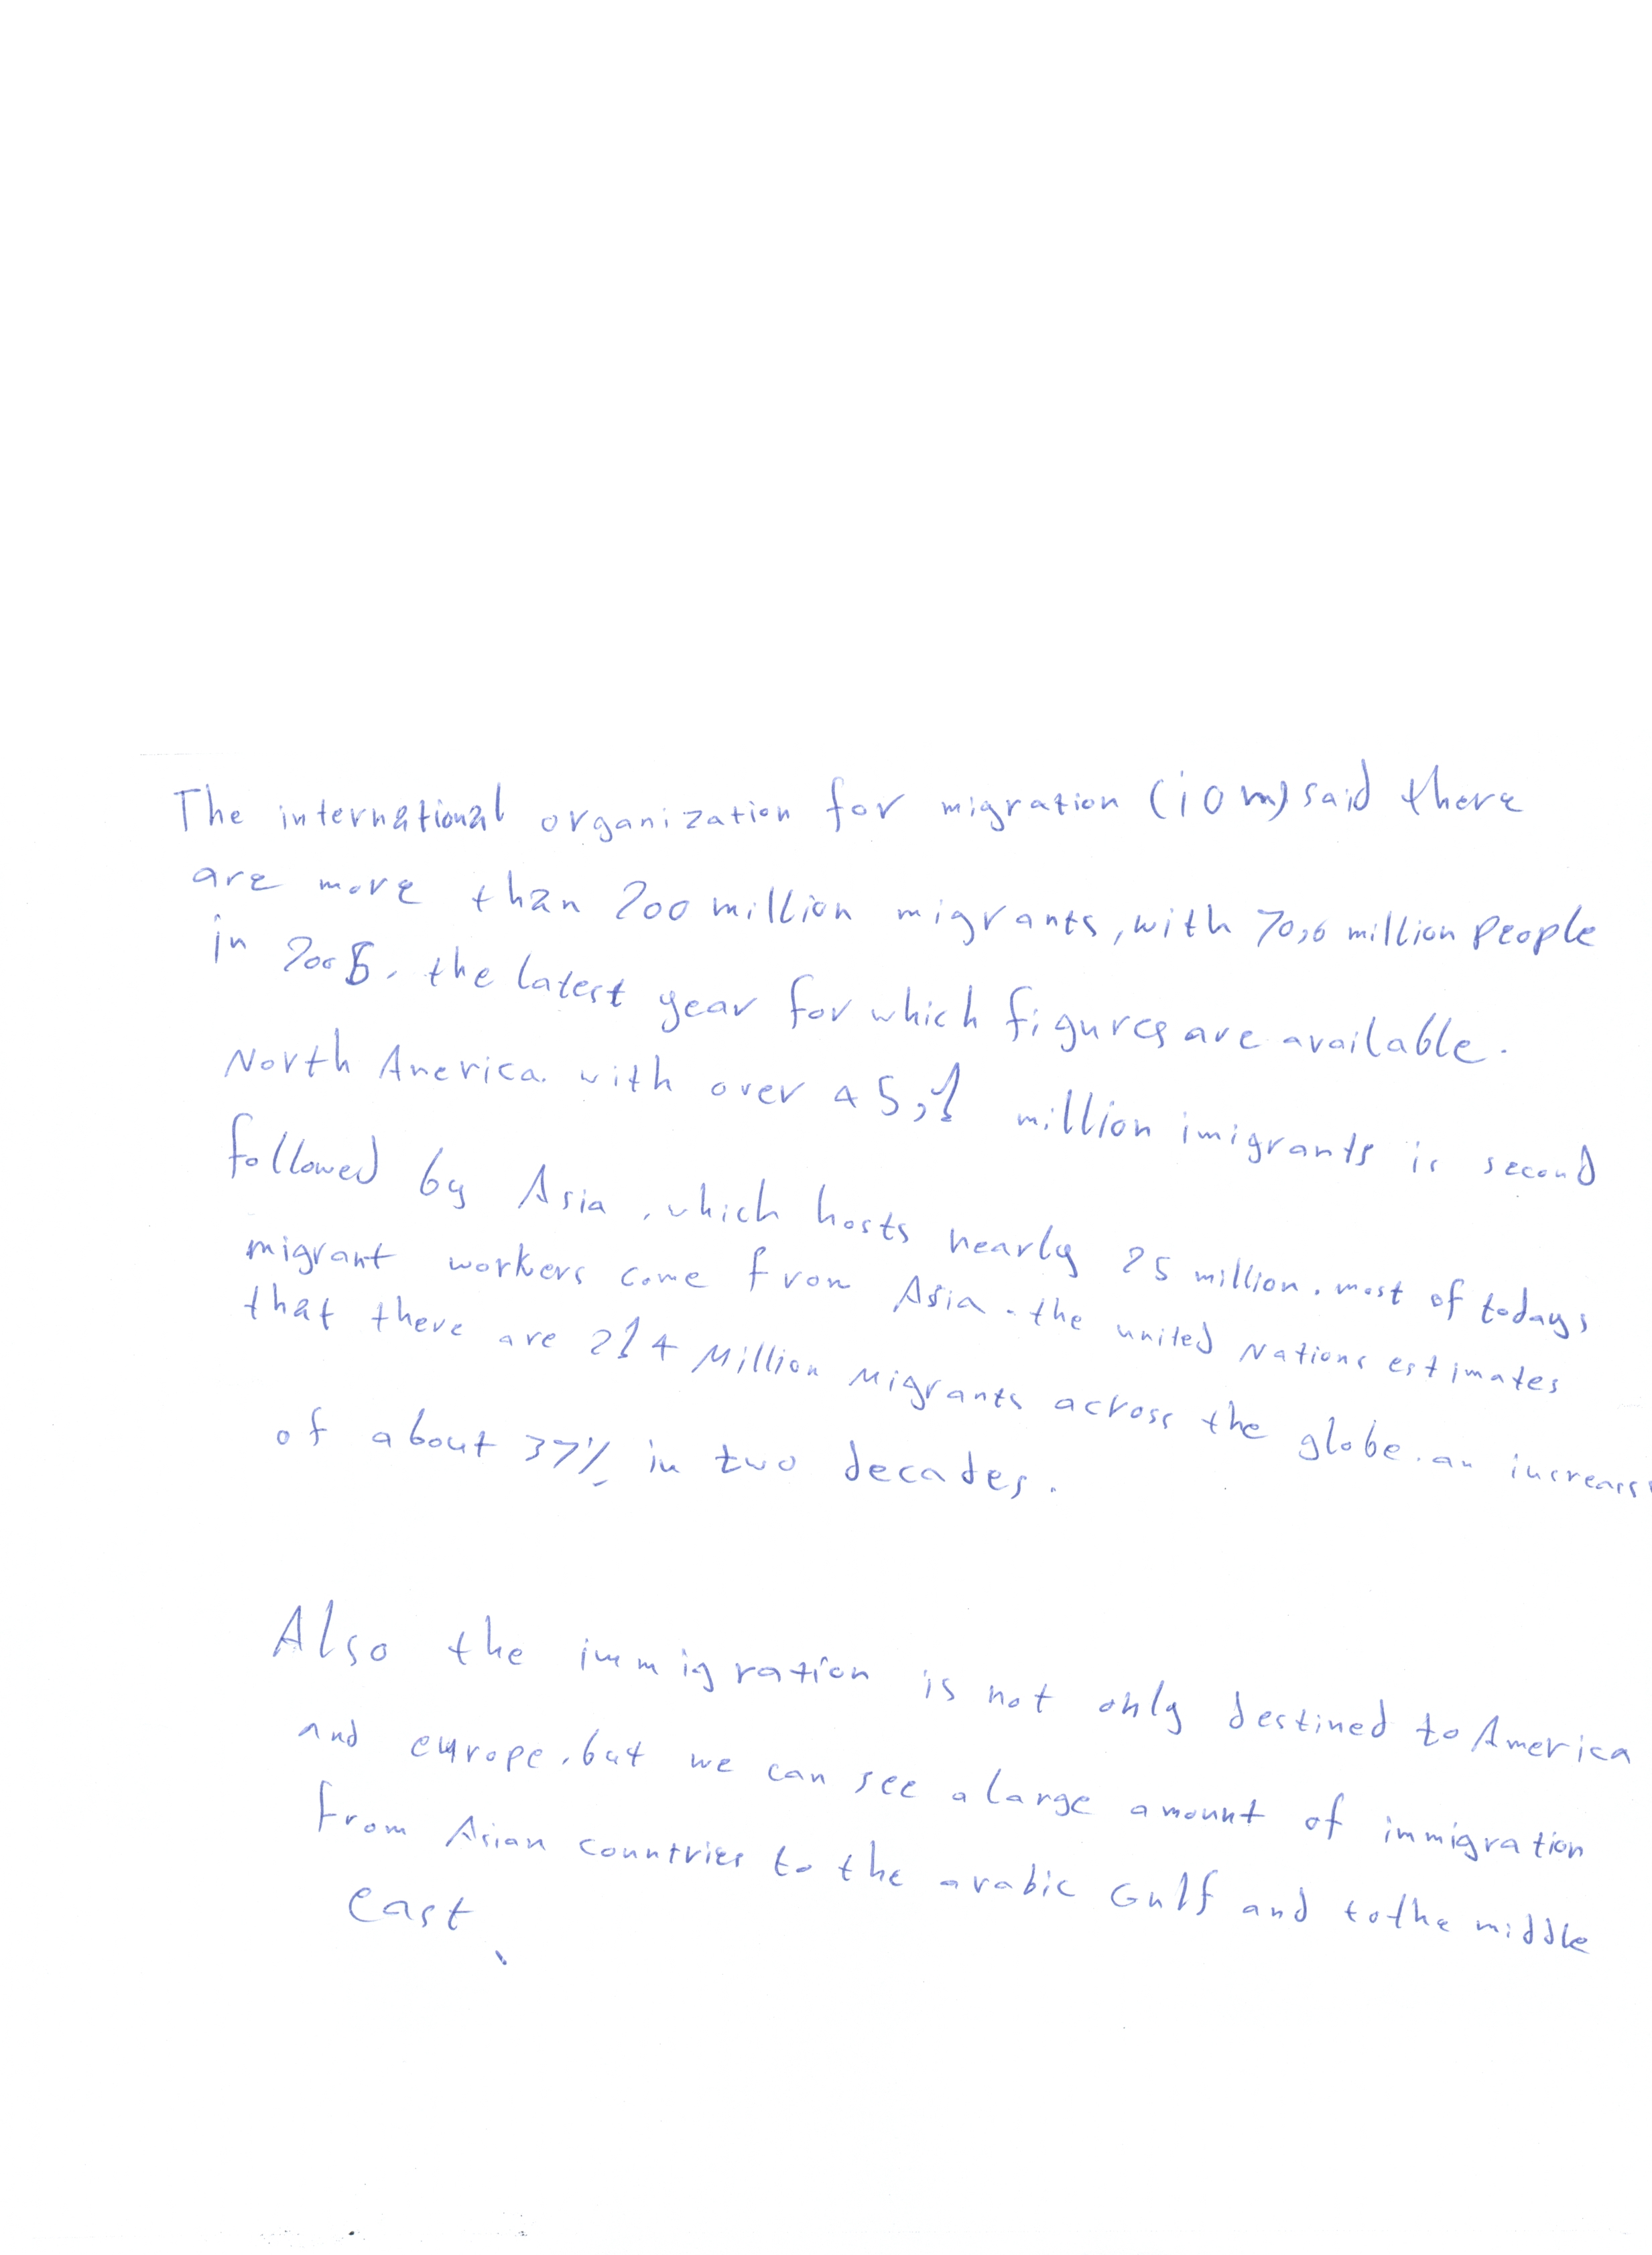 The international organization for migration (iom) said there
are more than 200 million migrants, with 70,6 million people
in 2005, the latest year for which figures are available.
North America. with over 45,1 million imigrants is second
followed by Asia, which hosts nearly 25 million. most of todays
migrant workers come from Asia. the united Nations estimates
that there are 214 Million Migrants across the globe. an increase
of about 37% in two decades.
Also the immigration is not only destined to America
and europe, but we can see a large amount of immigration
from Asian countries to the arabic Gulf and to the middle
east.